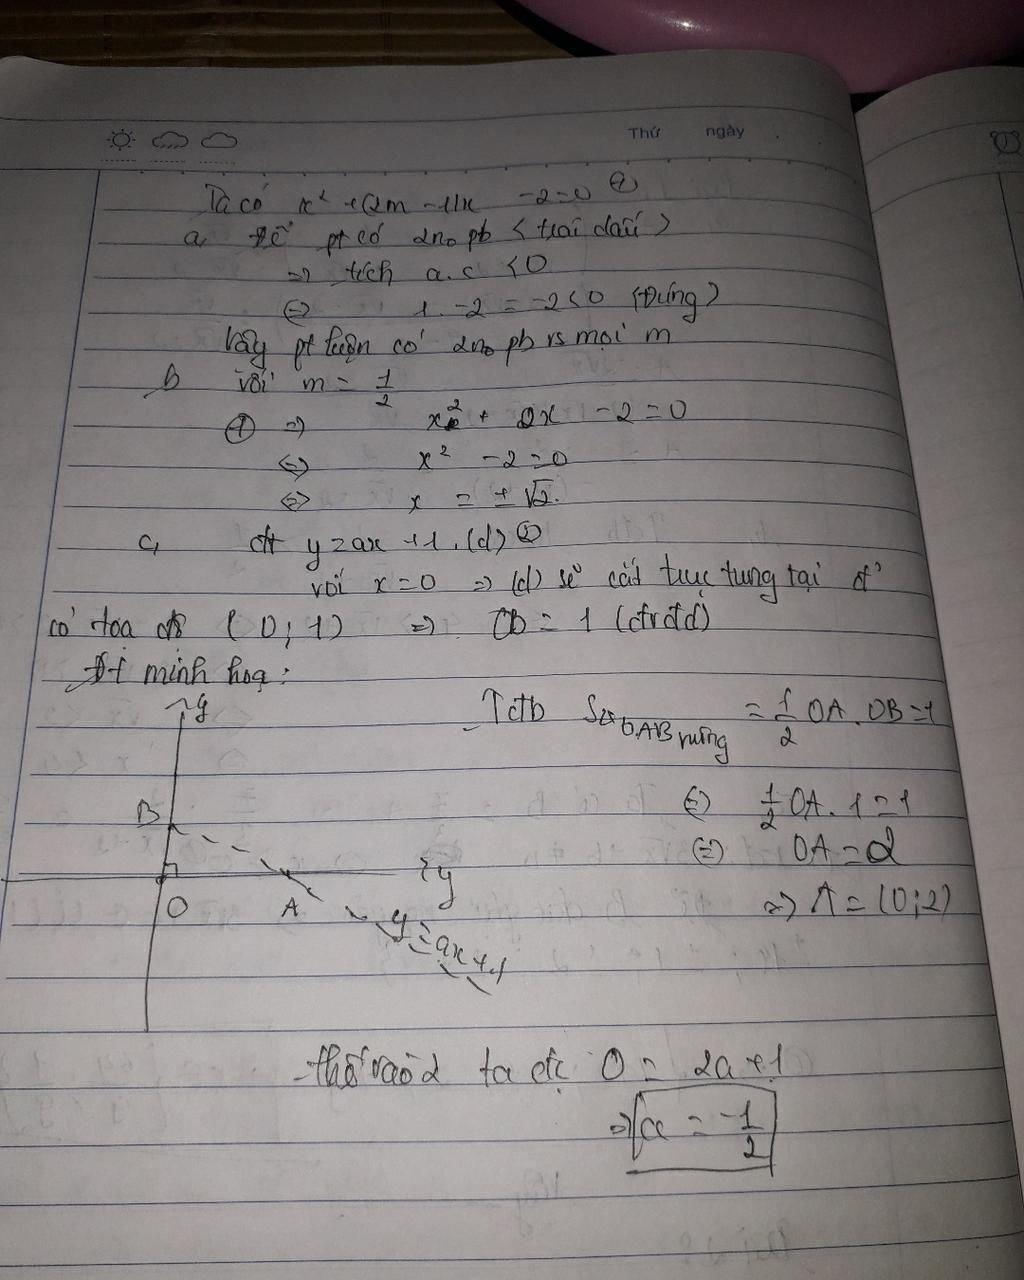 Thứ ngày
Ta có x² + (2m - 1)x - 2 = 0 ①
a, Để pt có 2no pb < trái dấu >
=> tích a.c < 0
<=> 1. -2 = -2 < 0 (Đúng)
Vậy pt luôn có 2no pb vs mọi m
b, với m = 1/2
① => x² + 0x - 2 = 0
<=> x² - 2 = 0
<=> x = ± √2.
c, đt y = ax + 1. (d) ②
với x = 0 => (d) sẽ cắt trục tung tại đ'
có tọa độ (0; 1) => OB = 1 (đvđd)
Đt minh hoạ:
y
Tđtb S OAB vuông = 1/2 OA. OB = 1
B
<=> 1/2 OA. 1 = 1
<=> OA = 2
y
O A
=> A = (0; 2)
y = ax + 1
thế vào 2 ta đc 0 = 2a + 1
=> a = -1/2